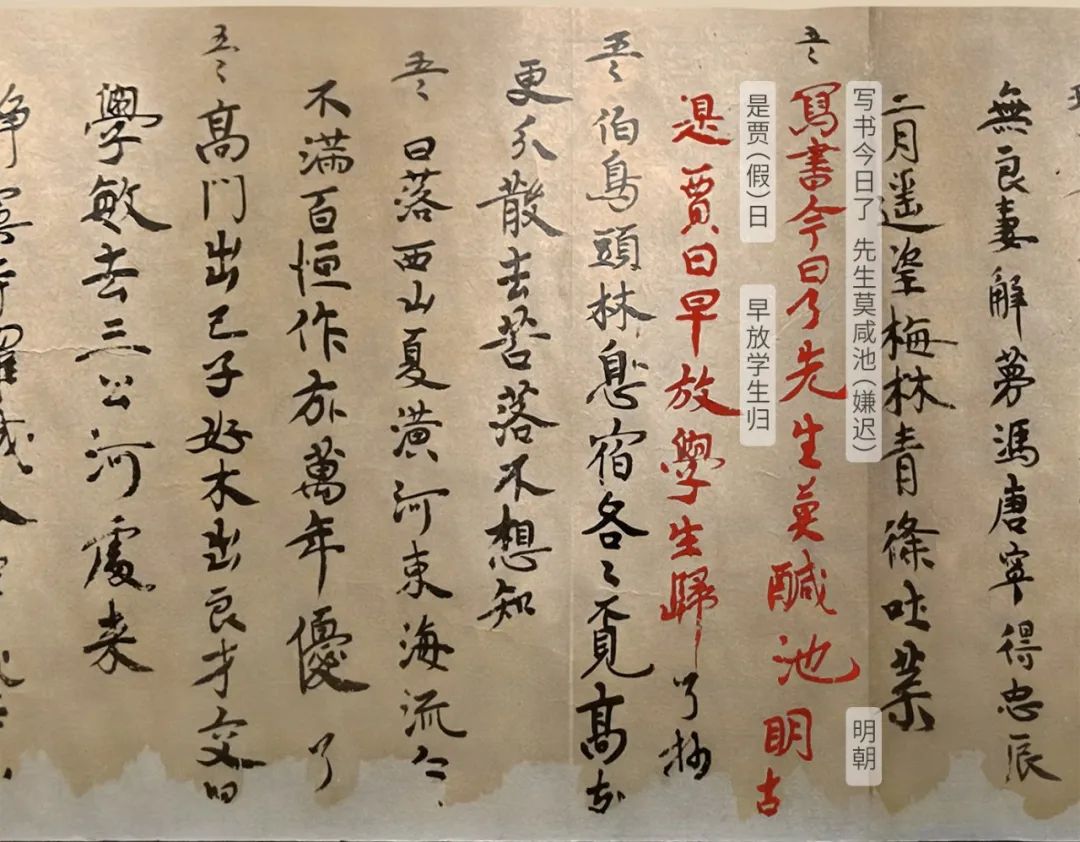 無良妻解夢馮唐寧得忠辰
二月遥望梅林青條吐葉
写书今日了 先生莫咸池(嫌迟)
明朝
五〻寫書今日了先生莫醎池明古
是贾(假)日
早放学生归
是賈日早放學生歸 了抄
五〻伯鳥頭林息宿各〻覓高
更分散去苦落不想知
五〻日落西山夏潢河東海流
不満百恒作方萬年優 了
五〻高門出己子好木出良才交口
學敏去三公河處来